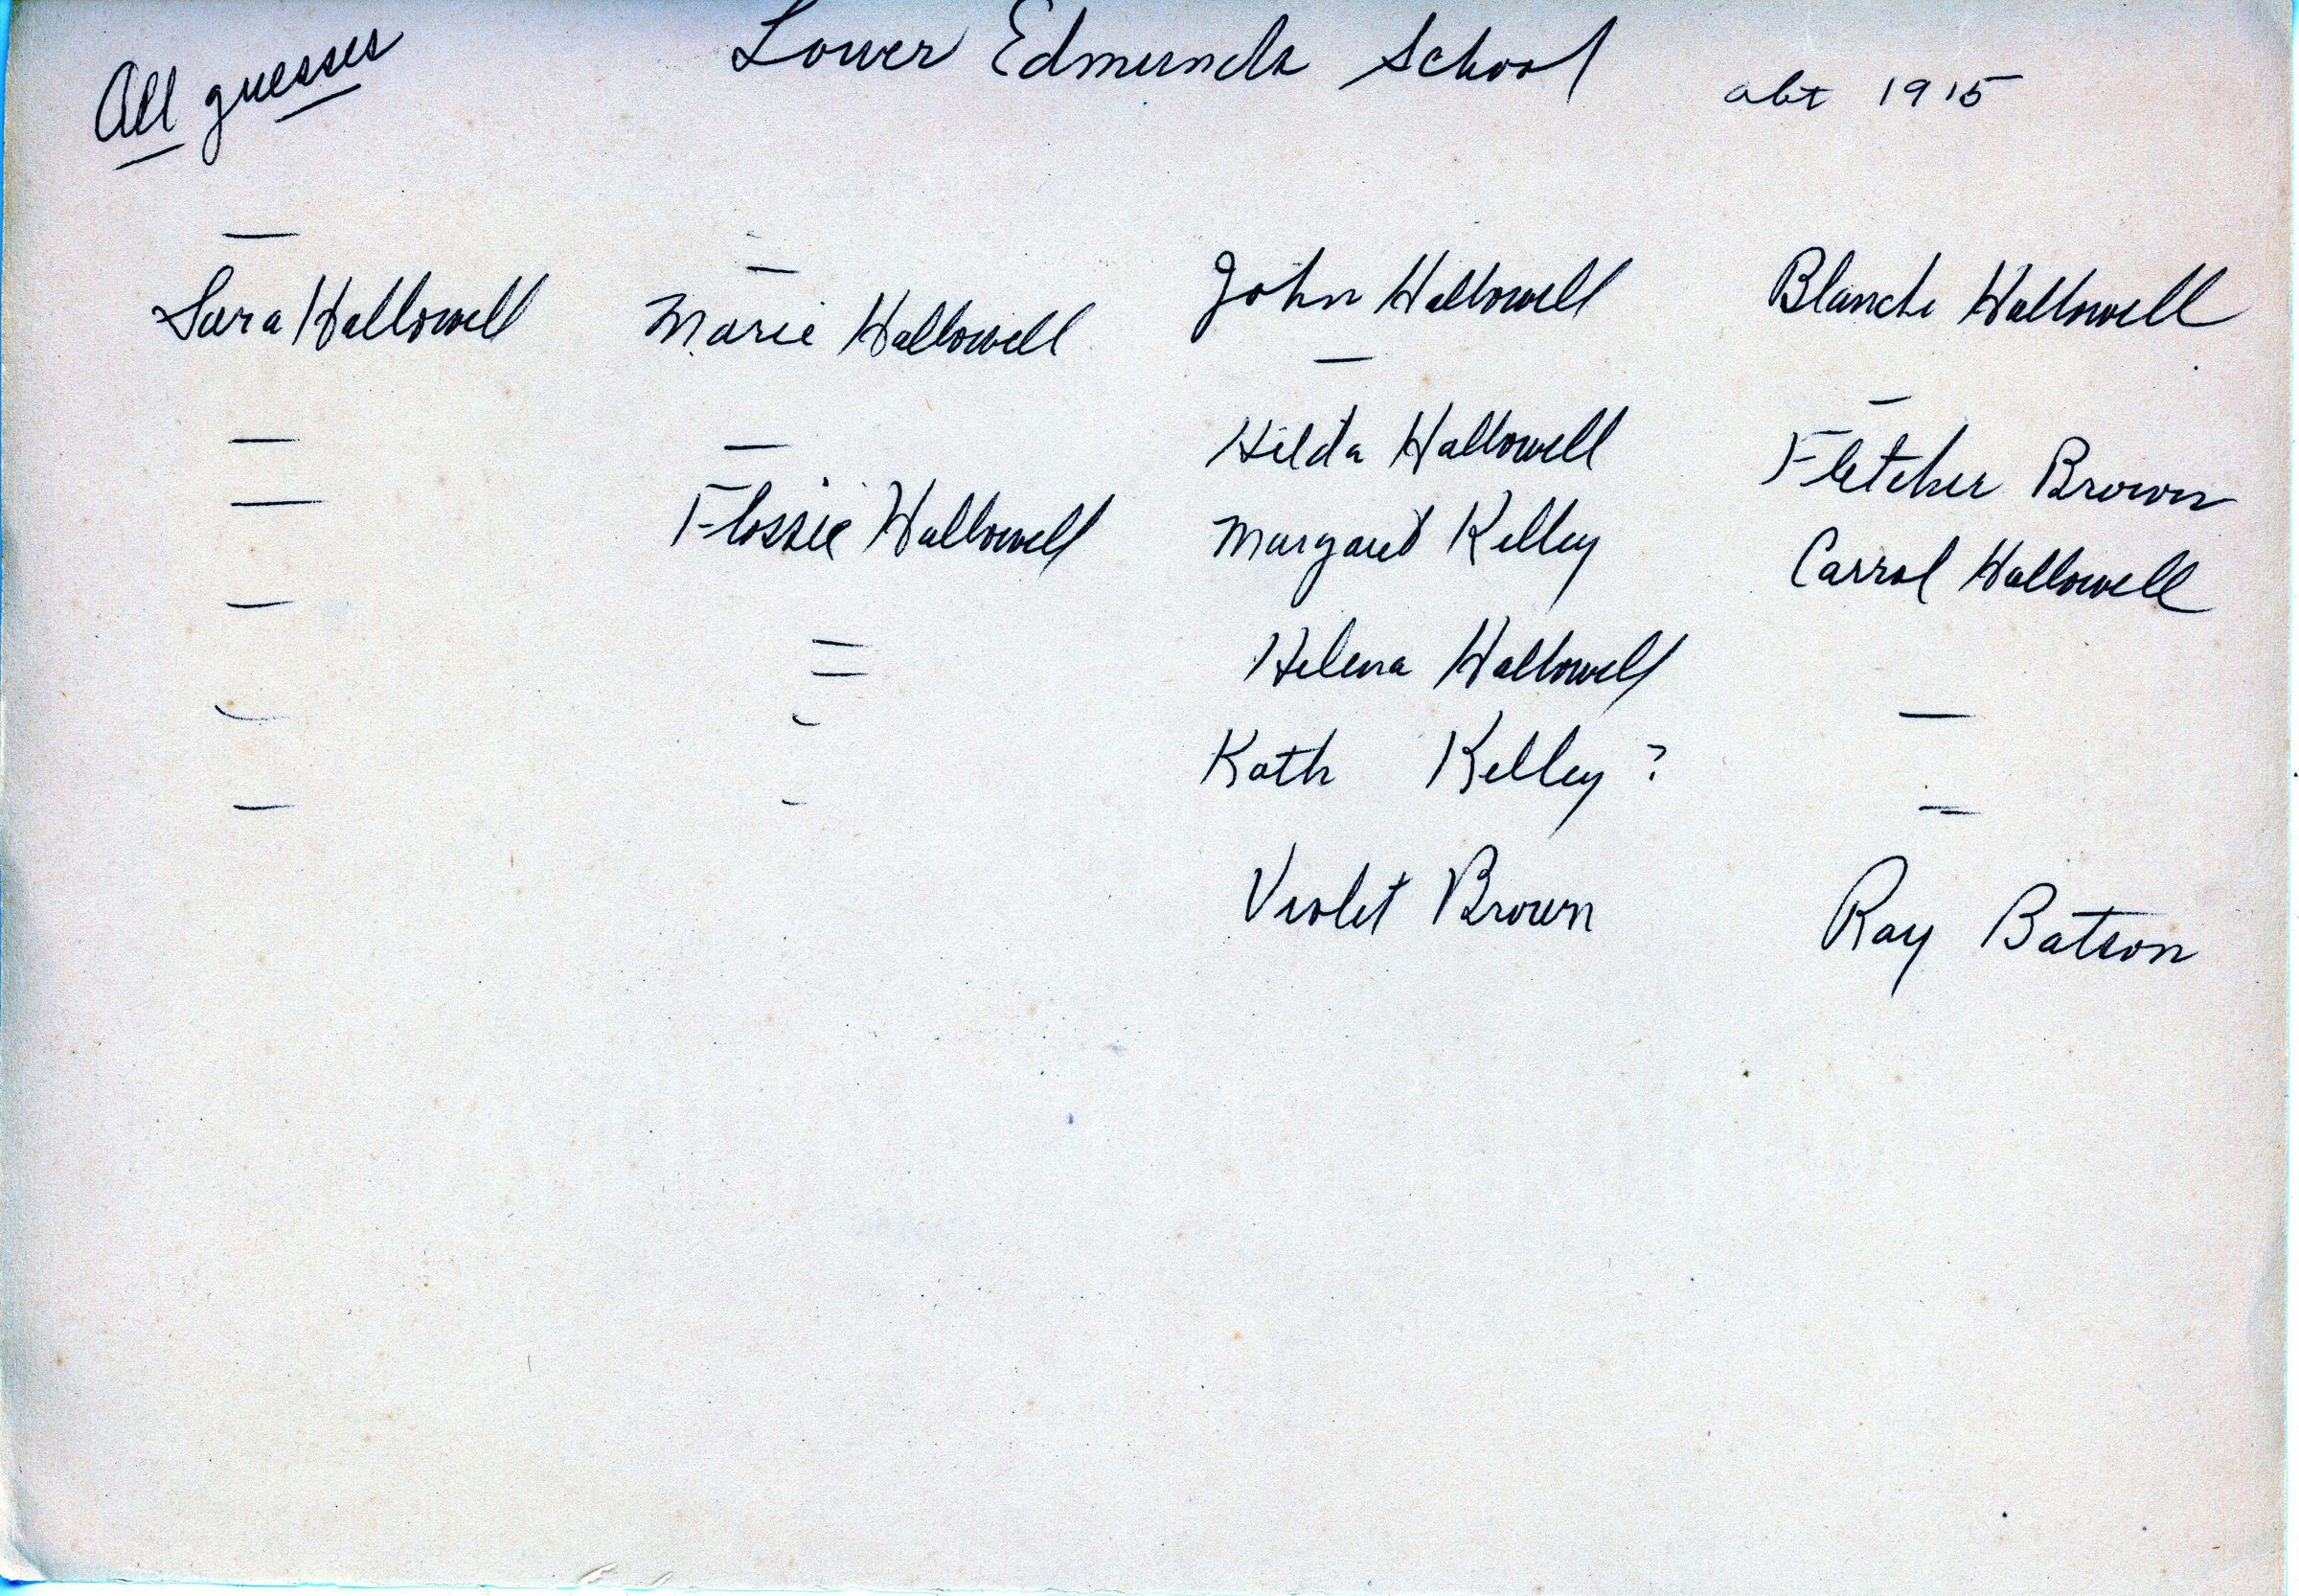 All guesses
Lower Edmunds School
abt 1915
—
Sara Hallowell
—
—
—
—
—
—
Marie Hallowell
—
Flossie Hallowell
—
—
-
-
John Hallowell
—
Hilda Hallowell
Margaret Kelley
Helena Hallowell
Kath Kelley ?
Violet Brown
Blanche Hallowell
—
Fletcher Brown
Carrol Hallowell
—
—
Ray Batson